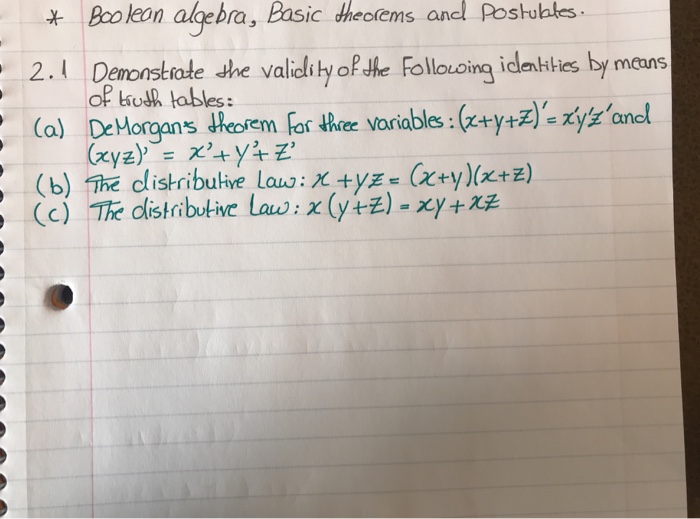 * Boolean algebra, Basic theorems and Postulates.
2.1 Demonstrate the validity of the Following identities by means
of truth tables:
(a) DeMorgan's theorem for three variables: (x+y+z)' = x'y'z' and
(xyz)' = x'+y'+z'
(b) The distributive Law: x + yz = (x+y)(x+z)
(c) The distributive Law: x (y+z) = xy + xz